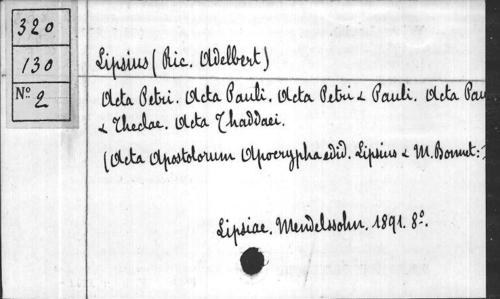 320
130
Nº 2
Lipsius (Ric. Adelbert)
Acta Petri. Acta Pauli. Acta Petri & Pauli. Acta Pau
& Theclae. Acta Thaddaei.
(Acta Apostolorum Apocrypha edid. Lipsius & M. Bonnet:
Lipsiae. Mendelssohn. 1891. 8º.